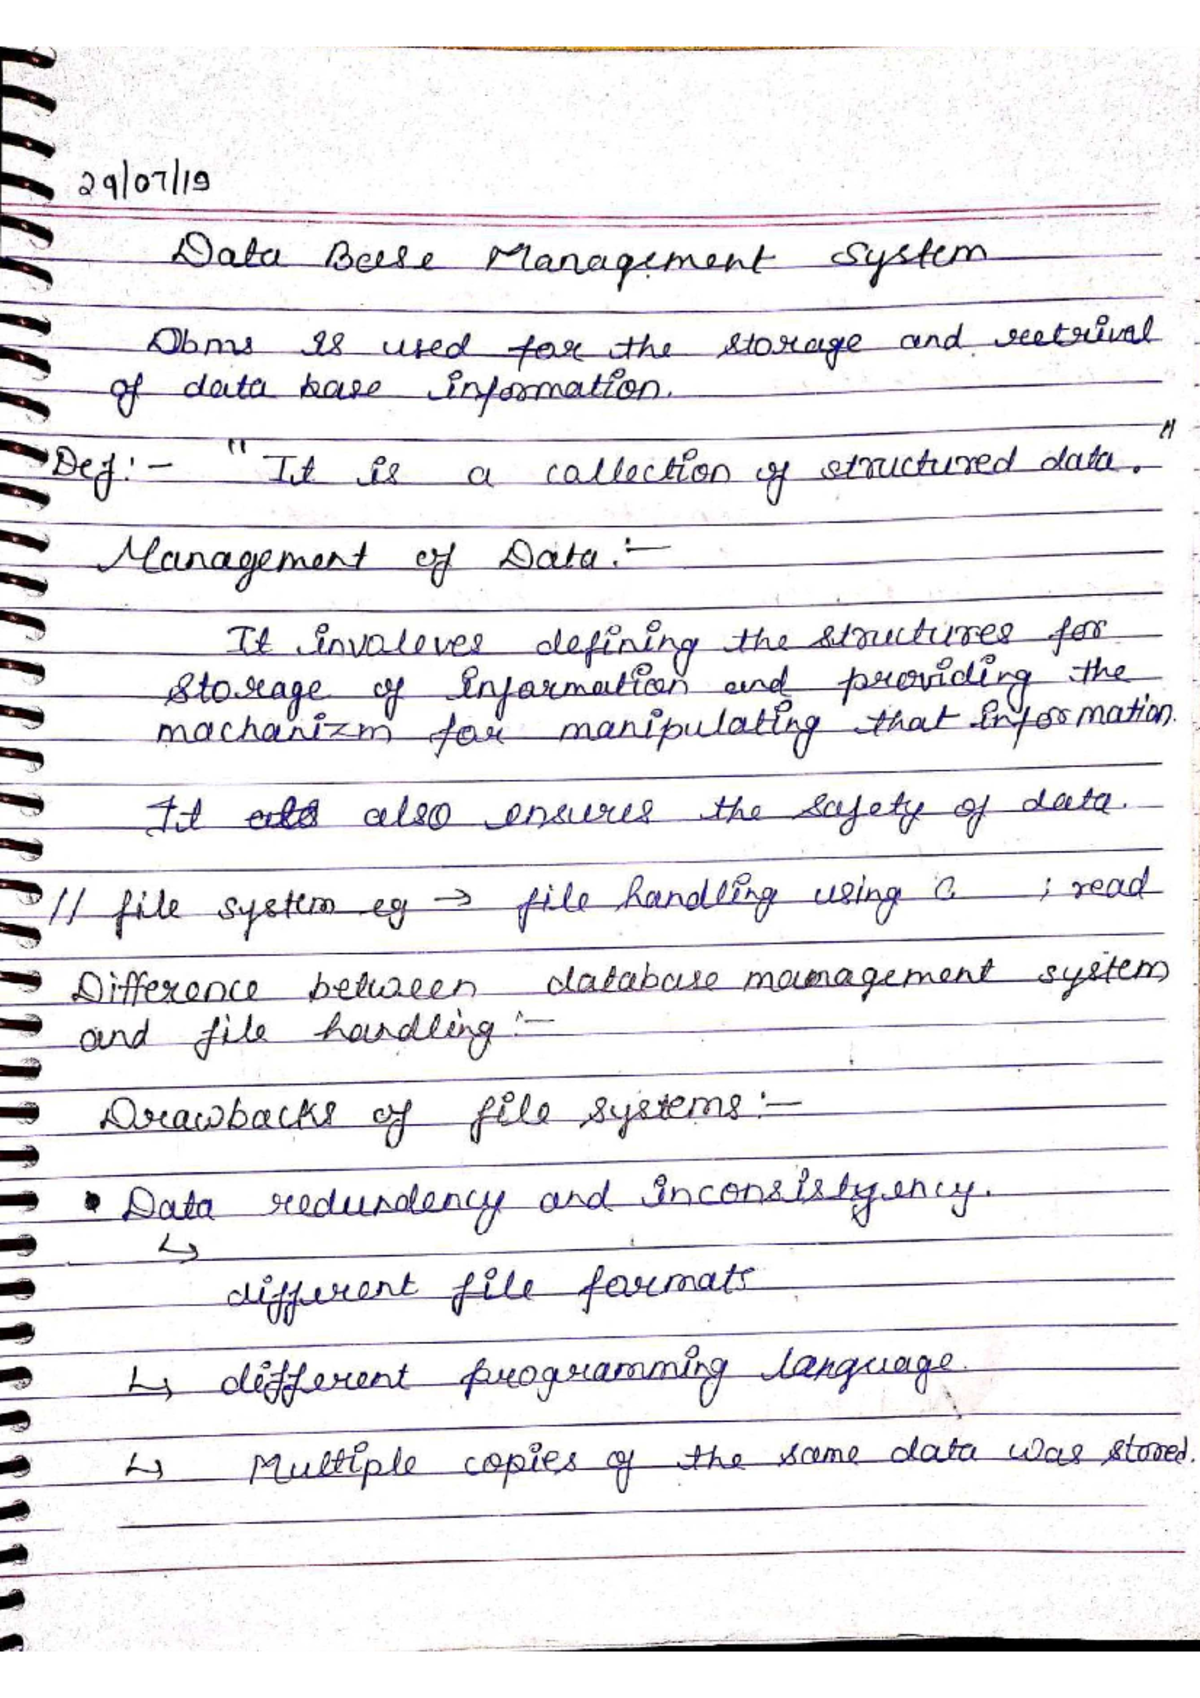 29/07/19
Data Base Management System
Dbms is used for the storage and retrival
of data base information.
Def:- "It is a collection of structured data."
Management of Data:-
It involeves defining the structures for
storage of information and providing the
machanizm for manipulating that information.
It also ensures the safety of data.
// file system eg → file handling using C ; read
Difference between database management system
and file handling:-
Drawbacks of file systems:-
• Data redundency and inconsistyency.
↳
different file formats
↳ different programming language.
↳ Multiple copies of the same data was stored.